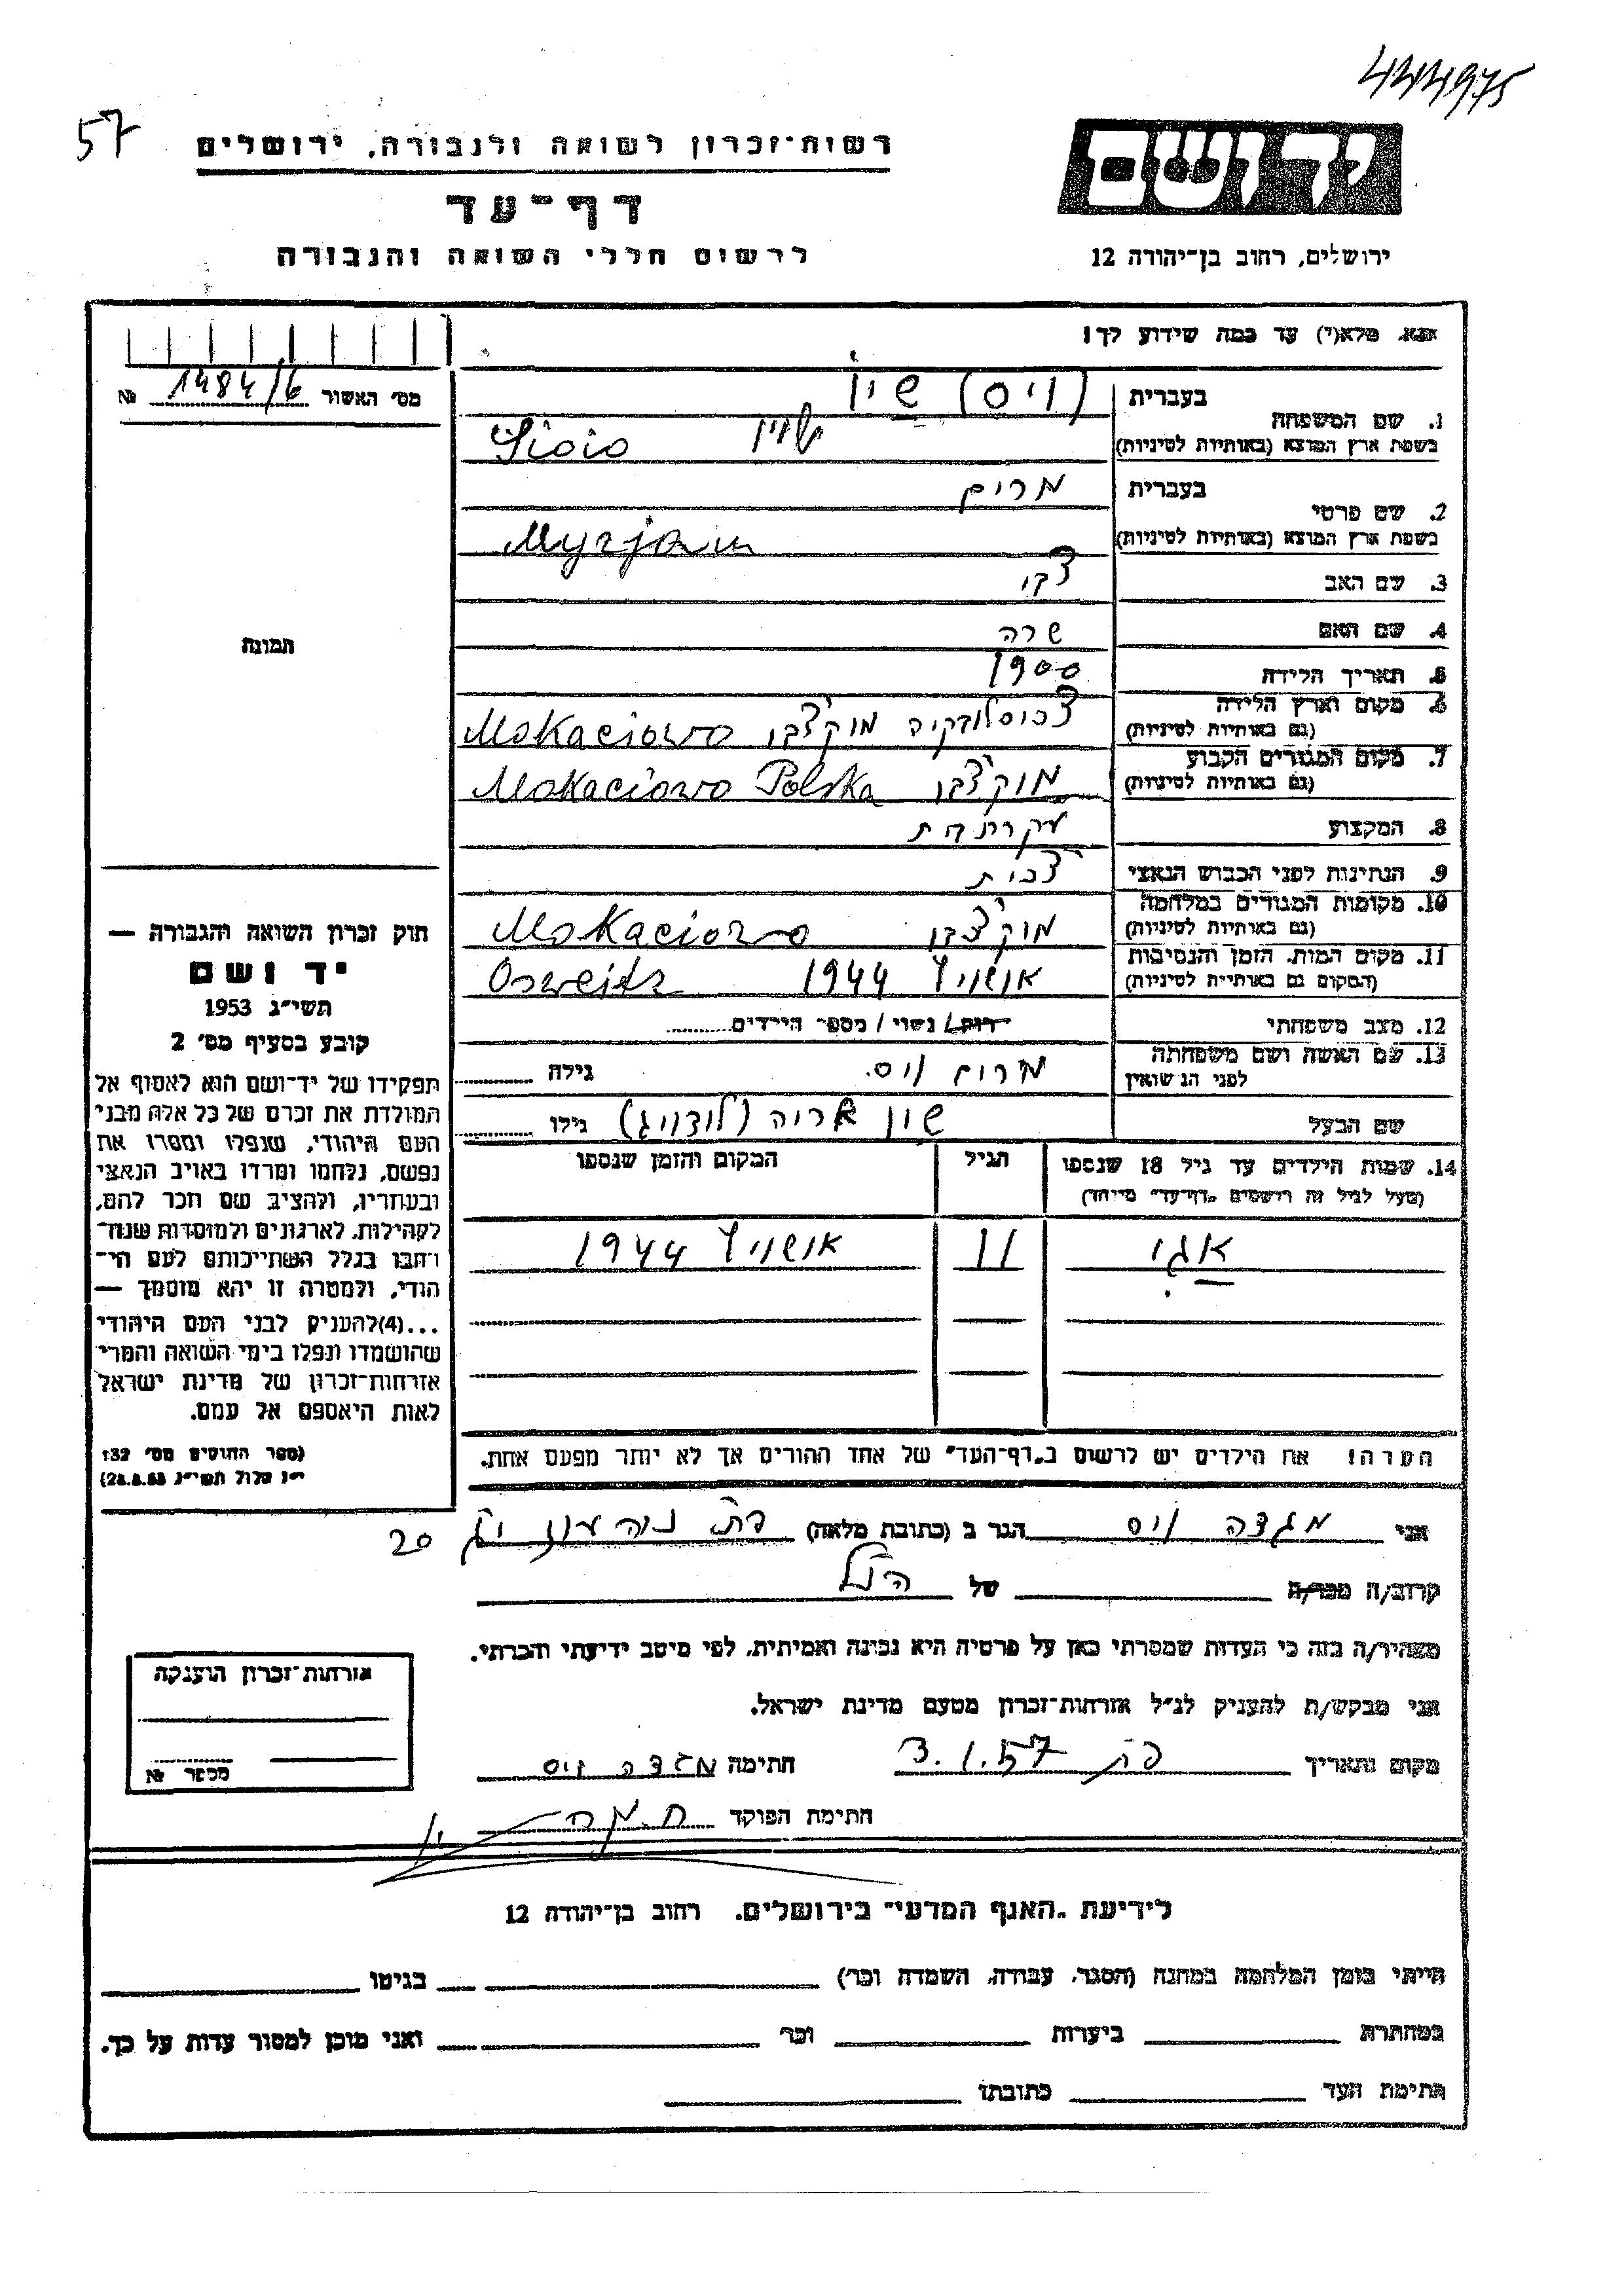 444975
57
יד ושם
רשות-זכרון לשואה ולגבורה, ירושלים
דף-עד
לרשום חללי השואה והגבורה
ירושלים, רחוב בן-יהודה 12
אנא, מלא(י) עד כמה שידוע לך!
מס׳ האשור 1484/6 №
1. שם המשפחה
בעברית (ויס) שיין
בשפת ארץ המוצא (באותיות לטיניות)
2. שם פרטי
בעברית מרים
בשפת ארץ המוצא (באותיות לטיניות) Myrjam
3. שם האב צבי
4. שם האם שרה
5. תאריך הלידה 1900
6. מקום וארץ הלידה (גם באותיות לטיניות) צ׳כוסלובקיה מוקצ׳בו Mokaciowo
7. מקום המגורים הקבוע (גם באותיות לטיניות) מוקצ׳בו Mokaciowo Polska
8. המקצוע עקרת בית
9. הנתינות לפני הכבוש הנאצי צ׳כית
10. מקומות המגורים במלחמה (גם באותיות לטיניות) מוקצ׳בו Mokaciowo
11. מקום המות, הזמן והנסיבות (המקום גם באותיות לטיניות) אושוויץ 1944 Osweitz
12. מצב משפחתי רווק/ נשוי / מספר הילדים
13. שם האשה ושם משפחתה לפני הנישואין מרים ויס. גילה
שם הבעל שיין אריה (לודוויג) גילו
14. שמות הילדים עד גיל 18 שנספו
(מעל לגיל זה רושמים „דף-עד" מיוחד)
הגיל
המקום והזמן שנספו
אגי 11 אושוויץ 1944
הערה! את הילדים יש לרשום ב„דף-העד" של אחד ההורים אך לא יותר מפעם אחת.
תמונה
חוק זכרון השואה והגבורה —
יד ושם
תשי״ג 1953
קובע בסעיף מס׳ 2
תפקידו של יד-ושם הוא לאסוף אל
המולדת את זכרם של כל אלה מבני
העם היהודי, שנפלו ומסרו את
נפשם, נלחמו ומרדו באויב הנאצי
ובעוזריו, ולהציב שם וזכר להם,
לקהילות, לארגונים ולמוסדות שנח־
רבו בגלל השתייכותם לעם הי־
הודי, ולמטרה זו יהא מוסמך —
...(4)להעניק לבני העם היהודי
שהושמדו ונפלו בימי השואה והמרי
אזרחות-זכרון של מדינת ישראל
לאות היאספם אל עמם.
(ספר החוקים מס׳ 132
י״ז אלול תשי״ג 28.8.53)
אני מגדה ויס הגר ב (כתובת מלאה) 20
קרוב/ה מכר/ה של הנ״ל
מצהיר/ה בזה כי העדות שמסרתי כאן על פרטיה היא נכונה ואמיתית, לפי מיטב ידיעתי והכרתי.
אני מבקש/ת להעניק לנ״ל אזרחות-זכרון מטעם מדינת ישראל.
מקום ותאריך 3.1.57 חתימה מגדה ויס
חתימת הפוקד
אזרחות-זכרון הוענקה
מספר №
לידיעת „האגף המדעי" בירושלים, רחוב בן-יהודה 12
הייתי בזמן המלחמה במחנה (הסגר, עבודה, השמדה וכו׳) בגיטו
במחתרת ביערות וכו׳ ואני מוכן למסור עדות על כך.
חתימת העד כתובתו